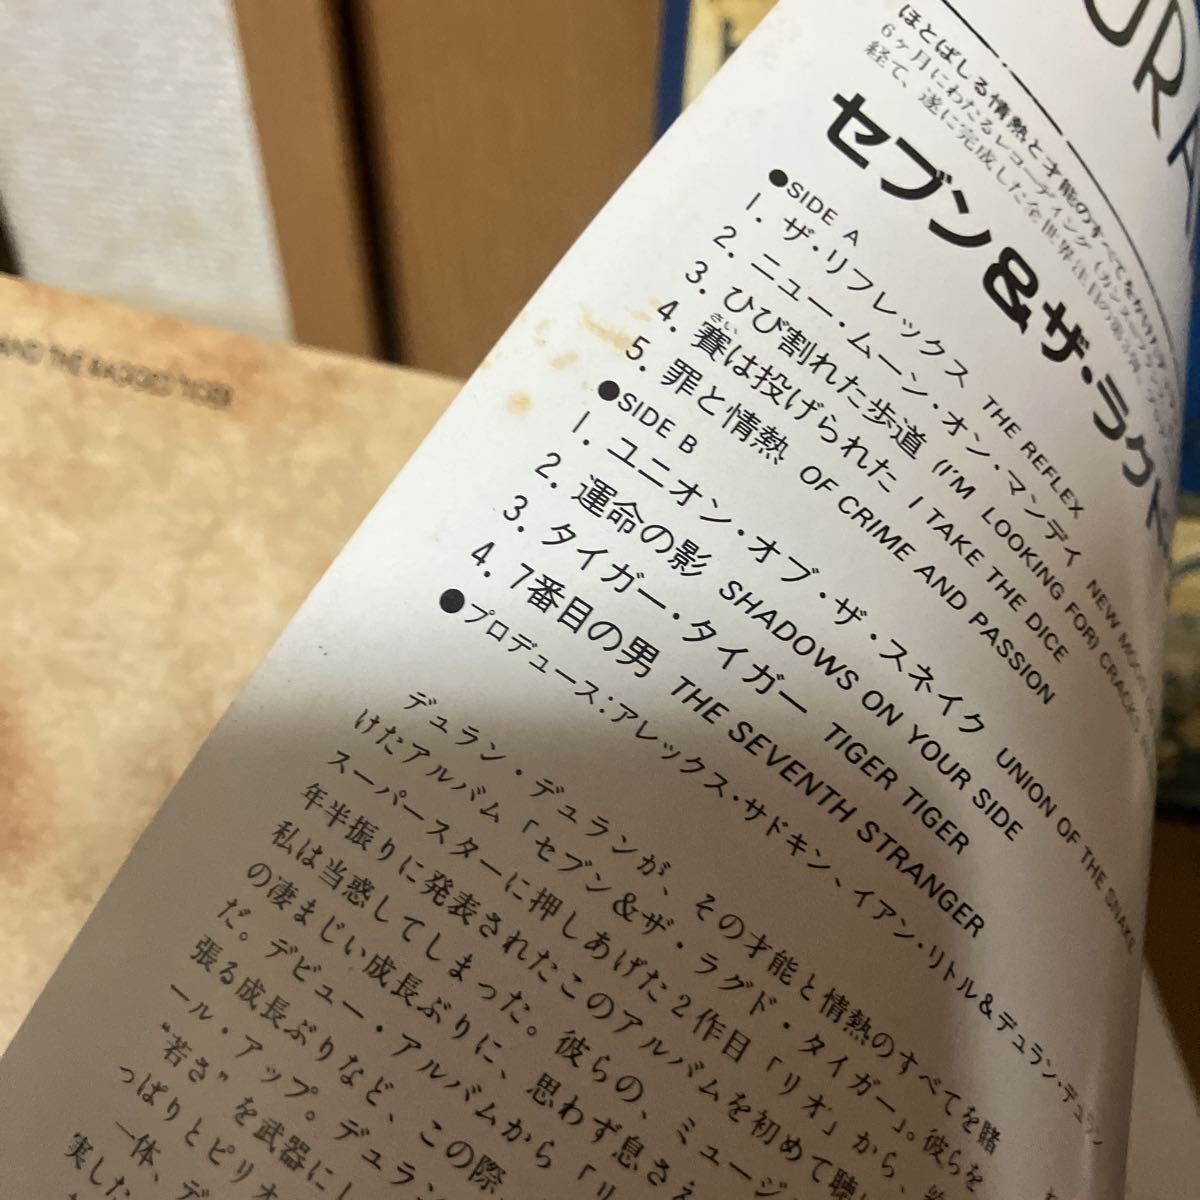 AND THE RAGGED TIGER
DURA
ほとばしる情熱と才能のすべてをかけ
6ヶ月にわたるレコーディング
経て、遂に完成した全世界注目の
セブン&ザ・ラグド
●SIDE A
1. ザ・リフレックス THE REFLEX
2. ニュー・ムーン・オン・マンデイ NEW MOON
3. ひび割れた歩道 (I'M LOOKING FOR) CRACKS
4. 賽は投げられた I TAKE THE DICE
さい
5. 罪と情熱 OF CRIME AND PASSION
●SIDE B
1. ユニオン・オブ・ザ・スネイク UNION OF THE SNAKE
2. 運命の影 SHADOWS ON YOUR SIDE
3. タイガー・タイガー TIGER TIGER
4. 7番目の男 THE SEVENTH STRANGER
●プロデュース:アレックス・サドキン、イアン・リトル&デュラン・デュラン
デュラン・デュランが、その才能と情熱のすべてを賭
けたアルバム「セブン&ザ・ラグド・タイガー」。彼らを
スーパースターに押しあげた2作目「リオ」から、
年半振りに発表されたこのアルバムを初めて聴
私は当惑してしまった。彼らの、ミュージ
の凄まじい成長ぶりに、思わず息さえ
だ。デビュー・アルバムから「リ
張る成長ぶりなど、この際、
ール・アップ。デュラン
“若さ”を武器にし
っぱりとピリオ
一体、デ
実した